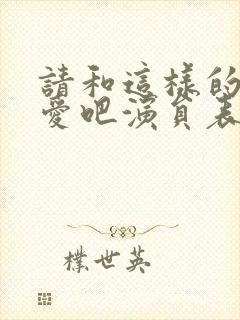 請和這樣的
愛吧演員表
樸世英